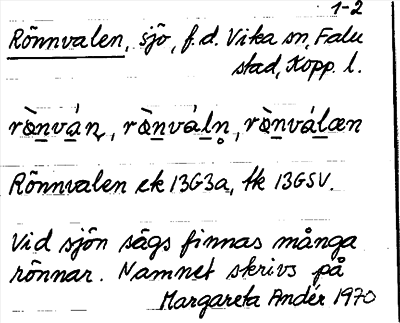 1-2
Rönnvalen, sjö, f.d. Vika sn, Falu
stad, Kopp. l.
Rönnvalen ek 13G3a, tk 13GSV.
Vid sjön sägs finnas många
rönnar. Namnet skrivs på
Margareta Andér 1970